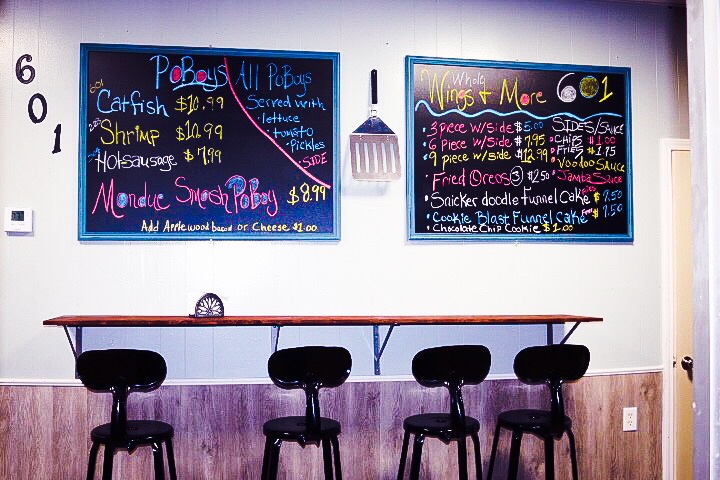 601
PoBoys
Catfish $10.99
Shrimp $10.99
Hotsausage $7.99
All PoBoys
Served with
·lettuce
·tomato
·Pickles
·SIDE
Mondue Smash PoBoy $8.99
Add Applewood bacon or Cheese $1.00
Wholq
Wings & More 601
·3 piece w/side $5.00
·6 piece w/side $7.95
·9 piece w/side $12.99
·Fried Oreos (3) $2.50
SIDES/SAUCE
·CHIPS $1.00
·FRIES $1.75
·VooDoo SAUCE
·Jamba Sauce
·Snicker doodle Funnel Cake Fries $7.50
·Cookie Blast Funnel Cake $7.50
·Chocolate Chip Cookie $1.00